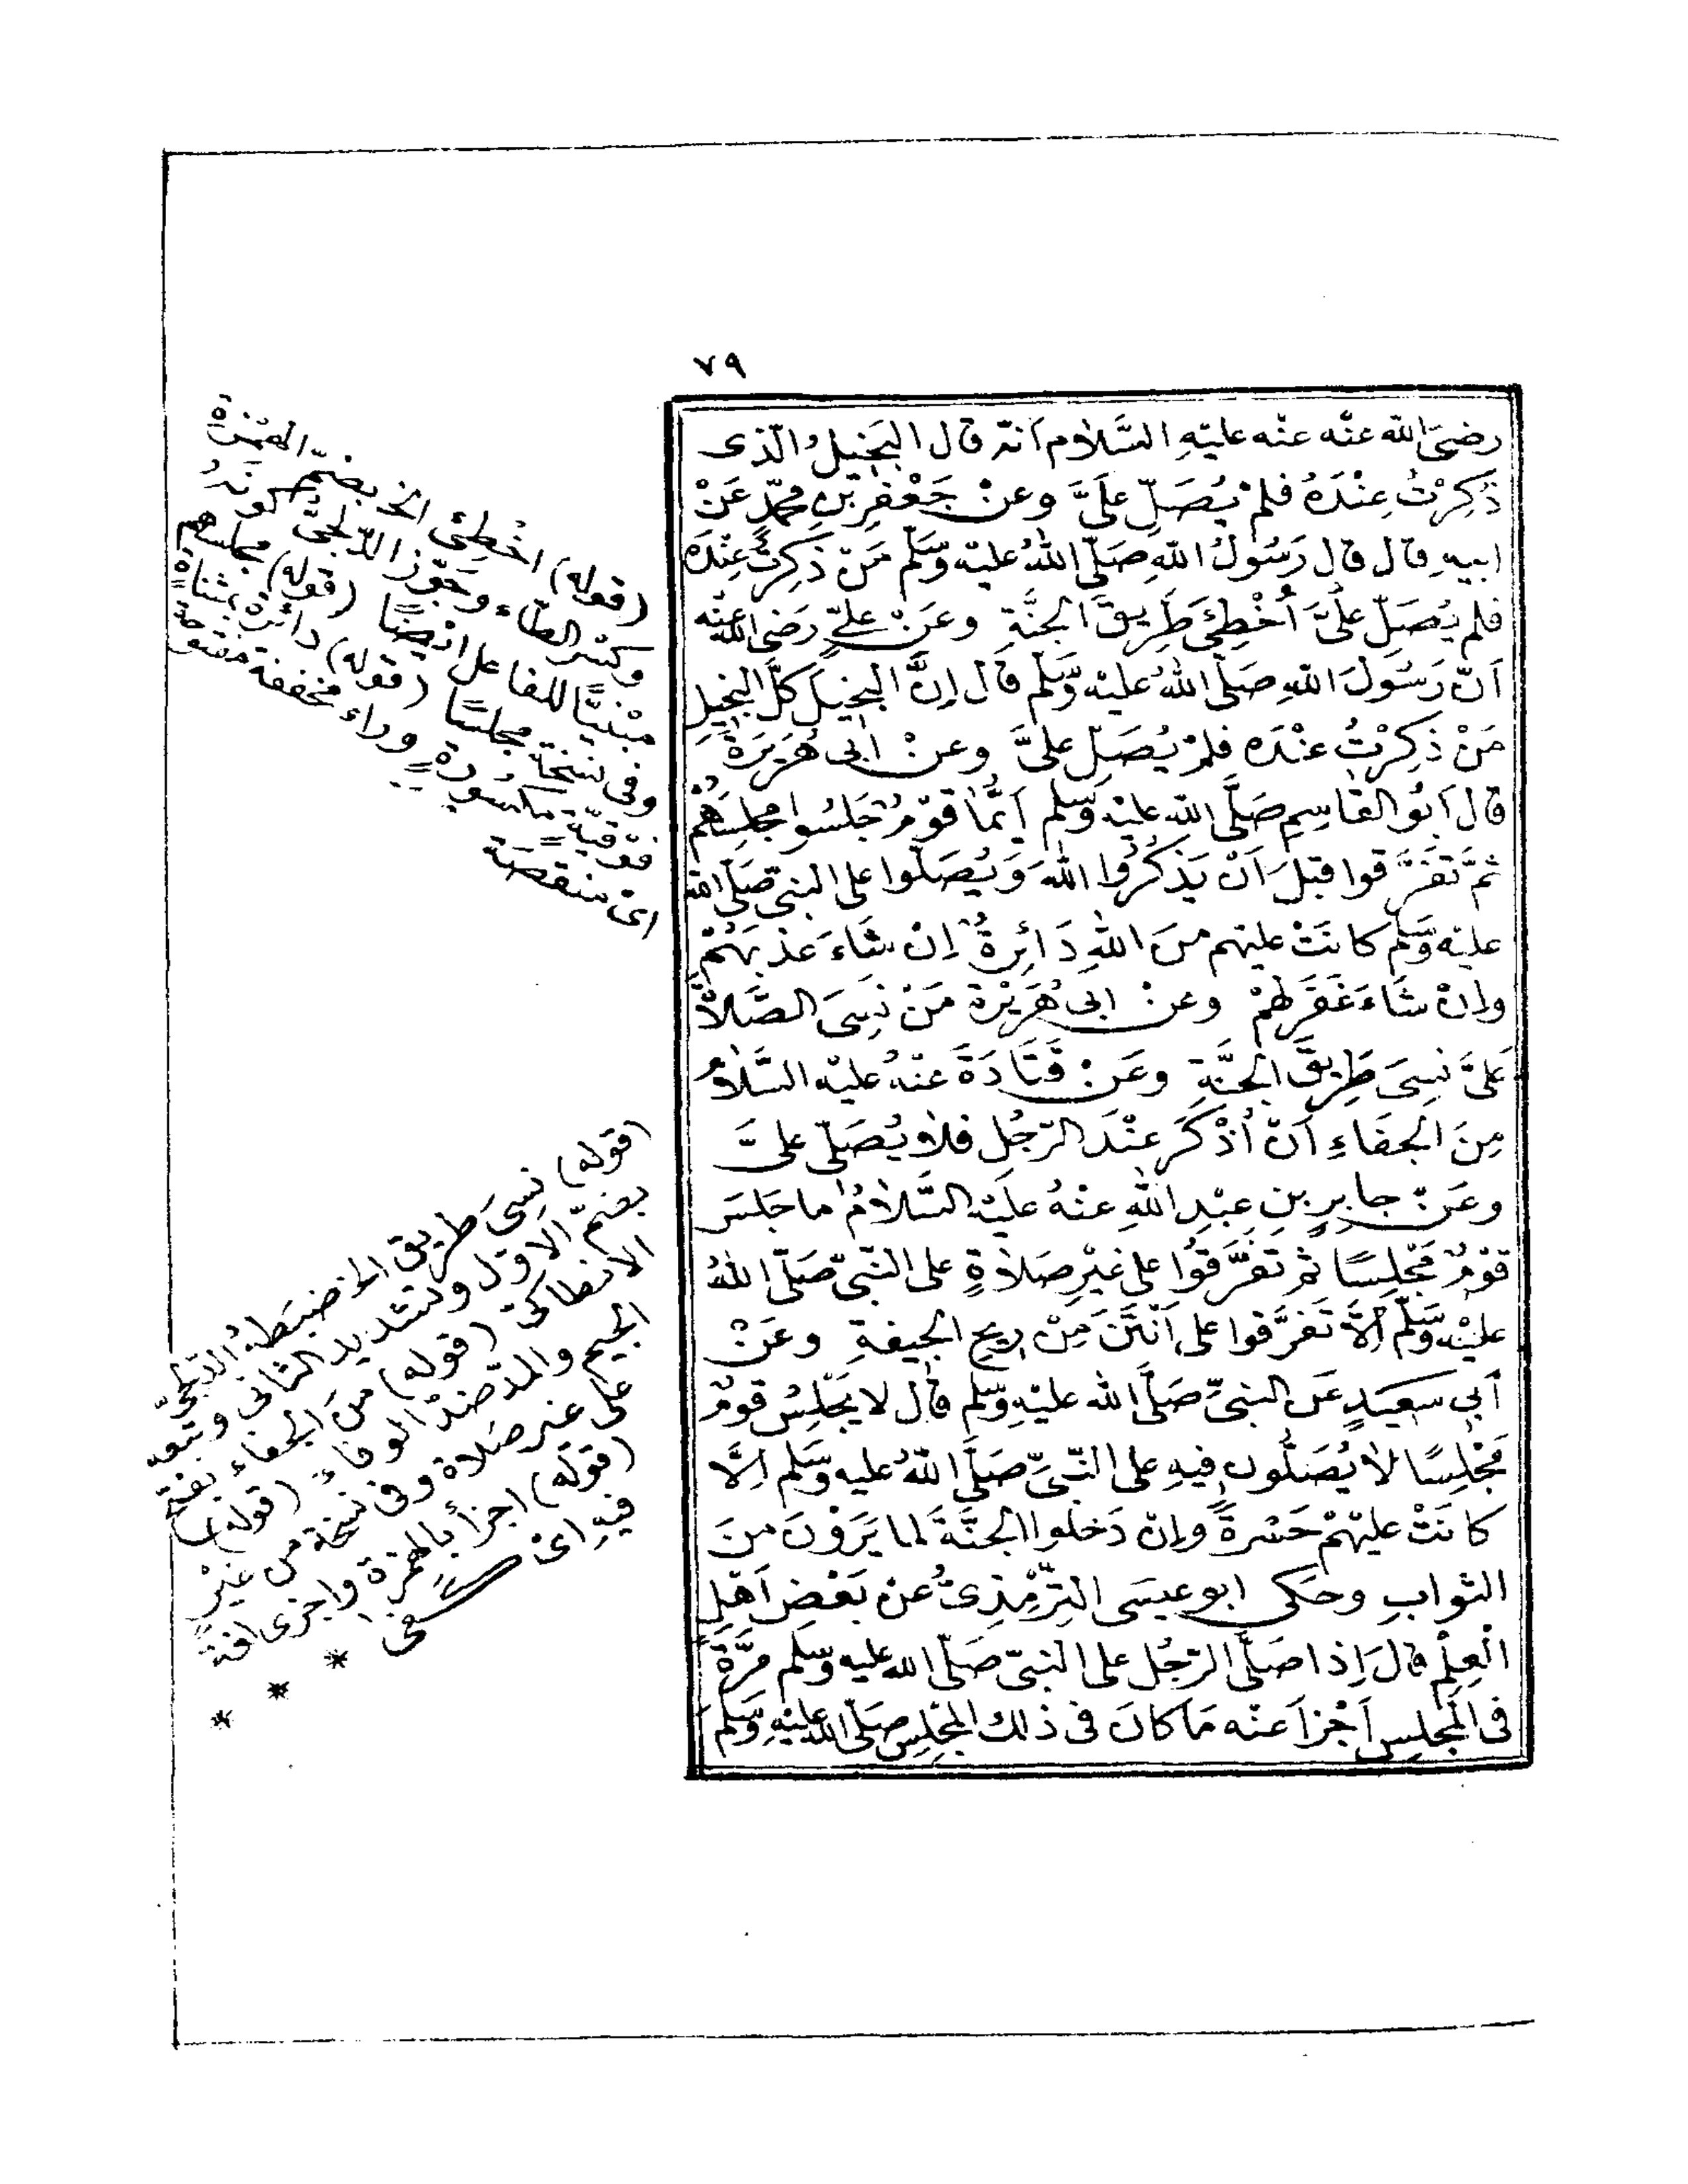 ٧٩
رضىَ الله عنْه عنْه عليْهِ السَّلام اَنّه قال البَخِيلُ الّذى
ذُكِرْتُ عِنْدَهُ فلم يُصَلِّ علَىَّ وعنْ جَعْفَرِ بْنِ محمّدٍ عَنْ
ابيهِ قال قال رَسُولُ اللهِ صَلَّى اللهُ عليْه وَسَّلم مَنْ ذُكِرْتُ عِنْدَهُ
فلم يُصَلِّ علىَّ اُخْطِئَ طَرِيقَ الجنَّةِ وعَنْ علىٍّ رَضى الله عنْه
اَنّ رَسُولَ اللهِ صَلّى اللهُ عليْه وَسَّلم قال اِنَّ البخيلَ كلَّ البَخيلِ
مَنْ ذُكِرْتُ عنْدَه فلمْ يُصَلِّ علىَّ وعنْ ابى هُرَيرَةَ
قال اَبُو القاسِمِ صَلَّى الله عليْه وَسّلم اَيّمَا قوْمٍ جَلَسُوا مجلِسَهُمْ
ثمَّ تفَرَّقوا قبْلَ اَنْ يَذكُرُوا اللهَ وَيُصَلّوا على النبىّ صَلّى الله
عليْه وَسّلم كانَتْ عليْهم منَ اللهِ دَائِرَةٌ اِنْ شَاءَ عذبَهُمْ
واِنْ شَاءَ غَفَرَ لهمْ وعنْ ابى هُرَيْرة مَنْ نَسِىَ الصَّلاةَ
عَلىَّ نسِىَ طَرِيقَ الجنَّةِ وعَنْ قَتَادَةَ عنْهُ عليْه السَّلامُ
مِنَ الجفَاءِ اَنْ اُذْكَرَ عنْدَ الرّجُلِ فلا يُصَلّى علىَّ
وعَنْ جابِرِ بنِ عبْدِ اللهِ عنْهُ علَيْه السَّلامُ ما جَلَسَ
قوْمٌ مَجْلِسًا ثمّ تفَرَّقُوا على غيْرِ صَلاةٍ على النّبىّ صَلّى اللهُ
عليْه وَسَلّم اِلّا تَفرَّقوا على اَنْتَنَ مِنْ ريحِ الجيفةِ وعَنْ
اَبى سَعيدٍ عَن النبىِّ صَلَّى الله عليْهِ وَسّلم قال لا يَجْلِسُ قومٌ
مَجْلِسًا لا يُصَلُّون فيهِ على النّبىِّ صَلَّى اللهُ عليه وَسَّلم اِلَّا
كانَتْ عليْهمْ حَسْرَةً واِنْ دَخلوا الجنَّةَ لما يَرَوْنَ منَ
الثوابِ وحَكى ابو عيسَى التِّرْمِذِىُّ عنْ بَعْضِ اَهْلِ
الْعِلْمِ قال اِذا صَلَّى الرّجُل على النبىّ صَلّى الله عليه وَسّلم مرَّةً
فى المَجْلِسِ اَجْزَاَ عنْه مَا كانَ فى ذلك المجْلِسِ صَلّى الله عليْهِ وَسّلم
(قوله) اخْطِئَ الخ بضمّ الهمْزة
وكسْر الطّاء وجَوّز الدّلجىّ كونَهُ
مبْنيًّا للفاعل ايْضًا (قوله) مجلسهم
وفى نسْخة مجلسًا (قوله) دائرة بمثناةٍ
فوْقيّةٍ مكسُورةٍ وراء مخففة مفتوحة
اىْ منقصَة
(قوله) نسِىَ طريق الخ ضبَطهُ الدّلجىّ
بضمّ الاوّل وتشديد الثانى وتبعه
الانطاكىّ (قوله) منَ الجفاء بفتح
الجيم والمدّ ضدّ الوفاء (قوله)
على غير صَلاة وفى نسْخة من غيْر
(قوله) اجزأ بالهمزة واجزى لغة
فيهِ اىْ كفى
* * *